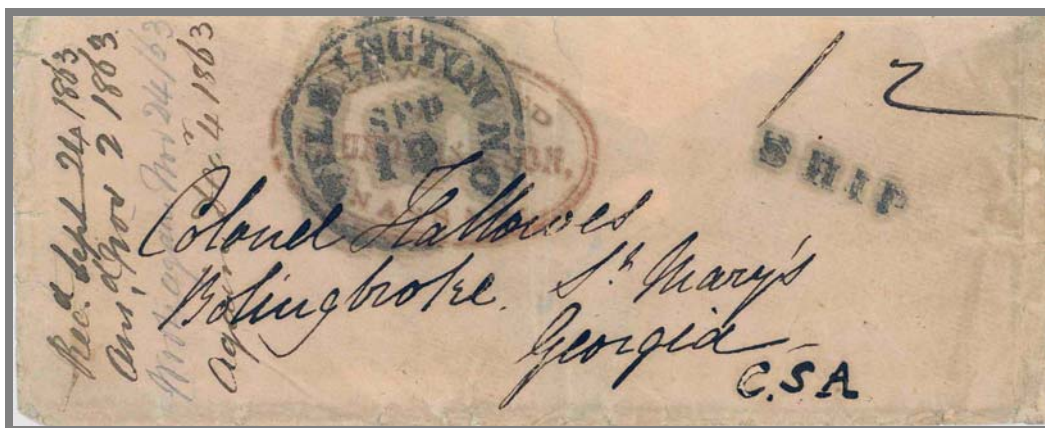 Rec.d Sept. 24 1863
Ans,d Nov 2 1863
Wrote again Nov 24/63
again 4 1863
WILMINGTON N.C.
SEP
19
SON,
NASSAU
12
SHIP
Colonel Hallowes
Bolingbroke. St. Mary's
Georgia
C.S.A